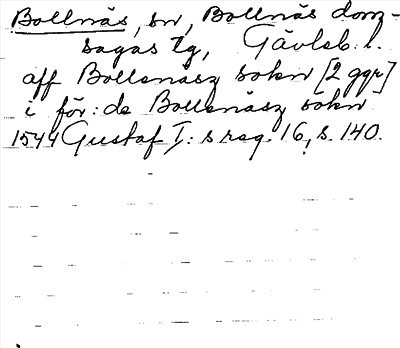 Bollnäs, sn, Bollnäs dom-
sagas tg, Gävleb. l.
aff Bollenäsz sokn [2 ggr]
i för: de Bollenäsz sokn
1544 Gustaf I: s reg. 16, s. 140.